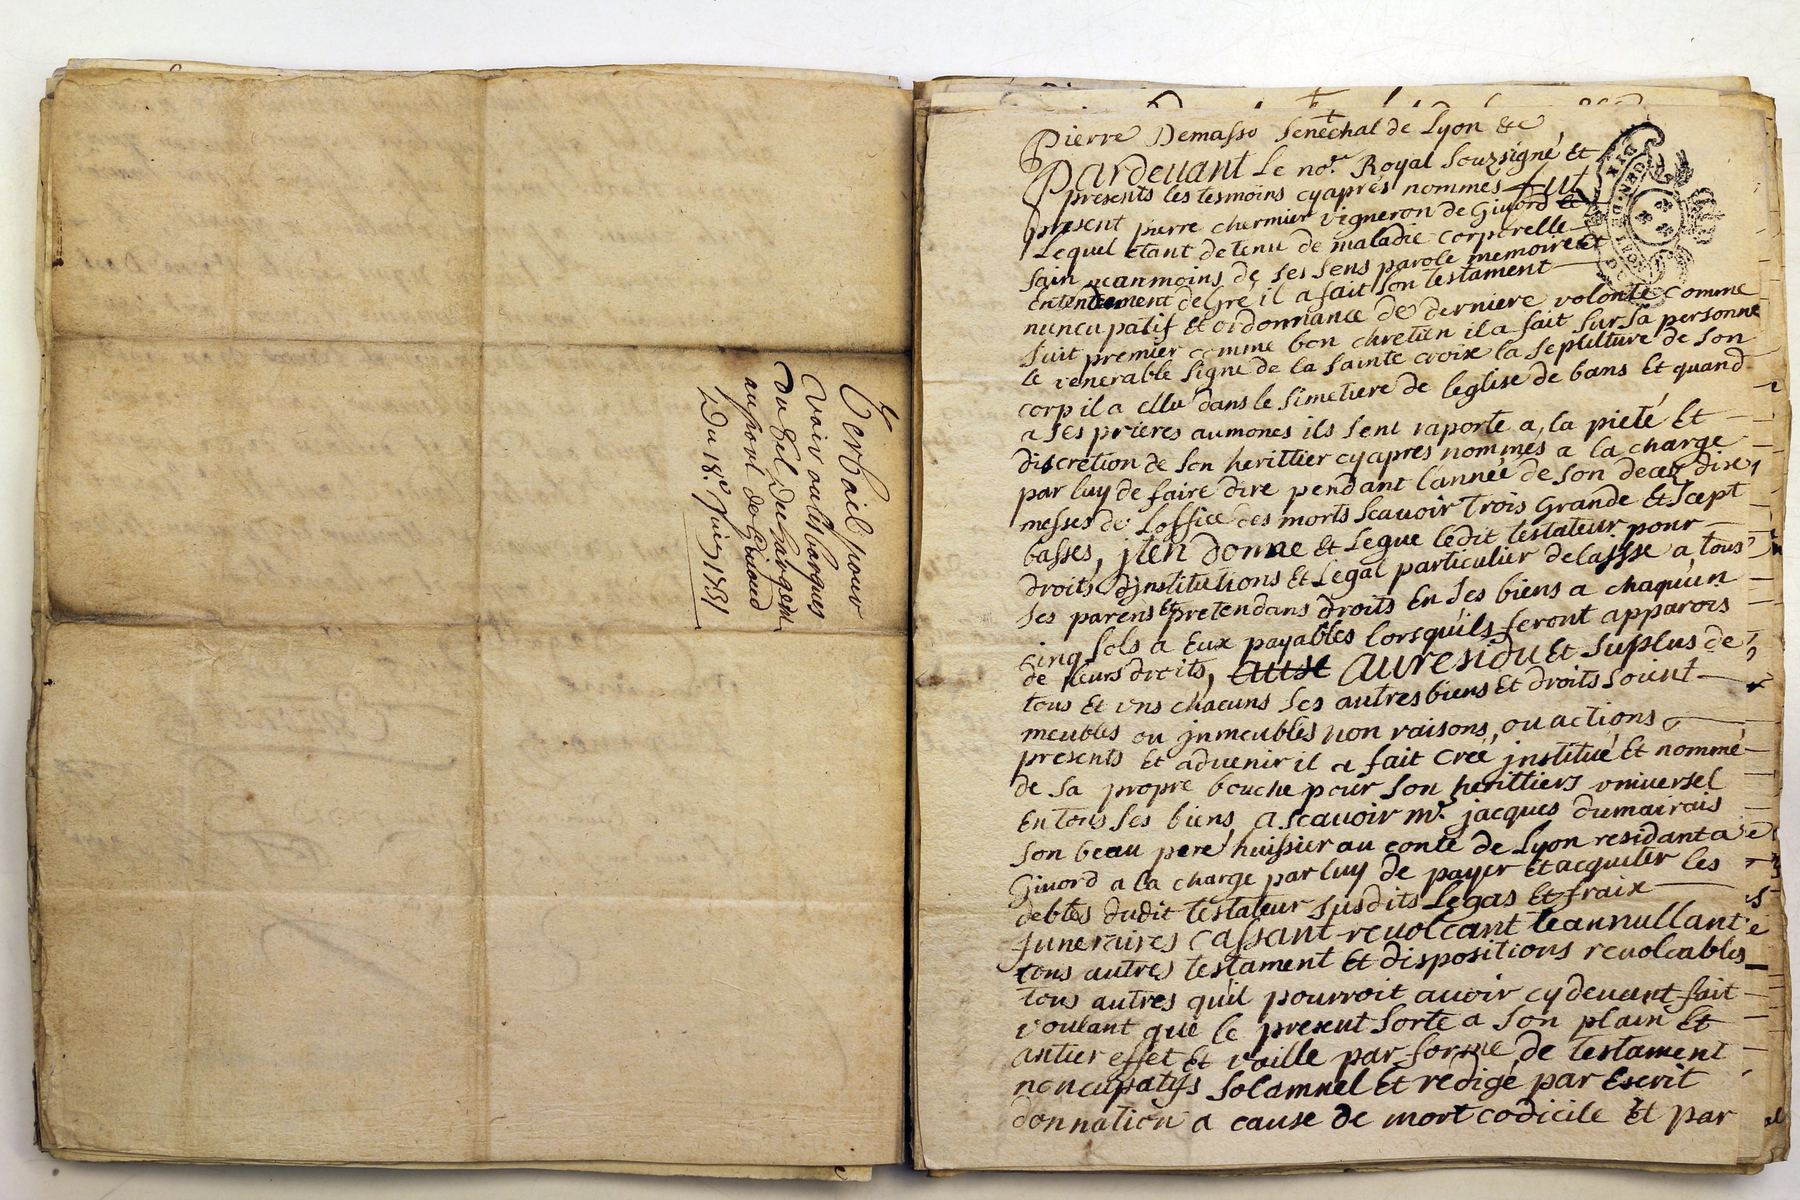 Verbail pour
voir au lis barques
du sel du chargement
au port de Givord
Du 18e Juin 1731
Pierre Demasso senechal de Lyon &c
Pardevant le nore. Royal souzsigné et
presents les tesmoins cyaprés nommés fut
present pierre chermier vigneron de Givord
Lequel étant detenu de maladie corporelle
sain neanmoins de ses sens parole memoire et
entendement de gré il a fait son testament
nuncupatif et ordonnance de derniere volonté comme
suit premier comme bon chretien il a fait sur sa personne
le venerable signe de la sainte croix la seplulture de son
corp il a ellu dans le simetiere de leglise de bans et quand
a ses prieres aumones ils sent raporte a, la pieté et
discretion de son herittier cyaprés nommés a la charge
par luy de faire dire pendant l'année de son decez dix
messes de L'office des morts scavoir trois Grande et sept
basses, jten donne et Legue ledit testateur pour
droits d'jnstitutions et Legat particulier delaisse a tous
ses parens et pretendans droits en ses biens a chaqu'un
cinq sols a eux payables lorsqu'ils feront apparois
de leurs droits, au residu et suplus de
tous et uns chacuns ses autres biens et droits soient
meubles ou jnmeubles non raisons, ou actions
presents et advenir il a fait créé jnstitué et nommé
de sa propre bouche pour son herittiers universel
en tous ses biens, a scavoir mr. jacques dumairais
son beau pere huissier au conté de Lyon residant a
Givord a la charge par luy de payer et acquiter les
debtes dudit testateur susdits Legas et fraix
funeraires cassant revolcant te annullant
tous autres testament et dispositions revolcables
tous autres quil pourroit avoir cy devant fait
voulant que le present sorte a son plain et
antier effet et vaille par forme de testament
noncupatifs solamnel et redigé par escrit
donnation a cause de mort codicile et par